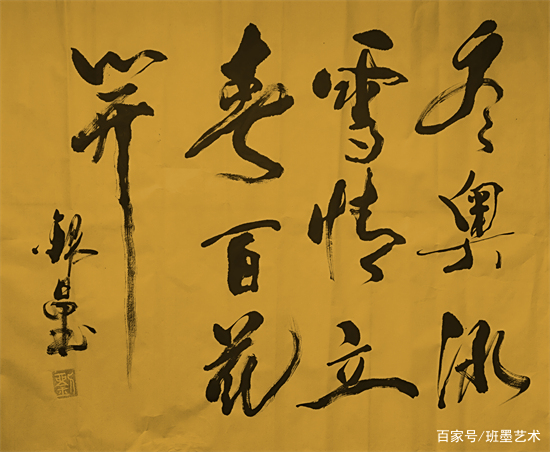 冬奥冰
雪情立
春百花
開
百家号/班墨艺术